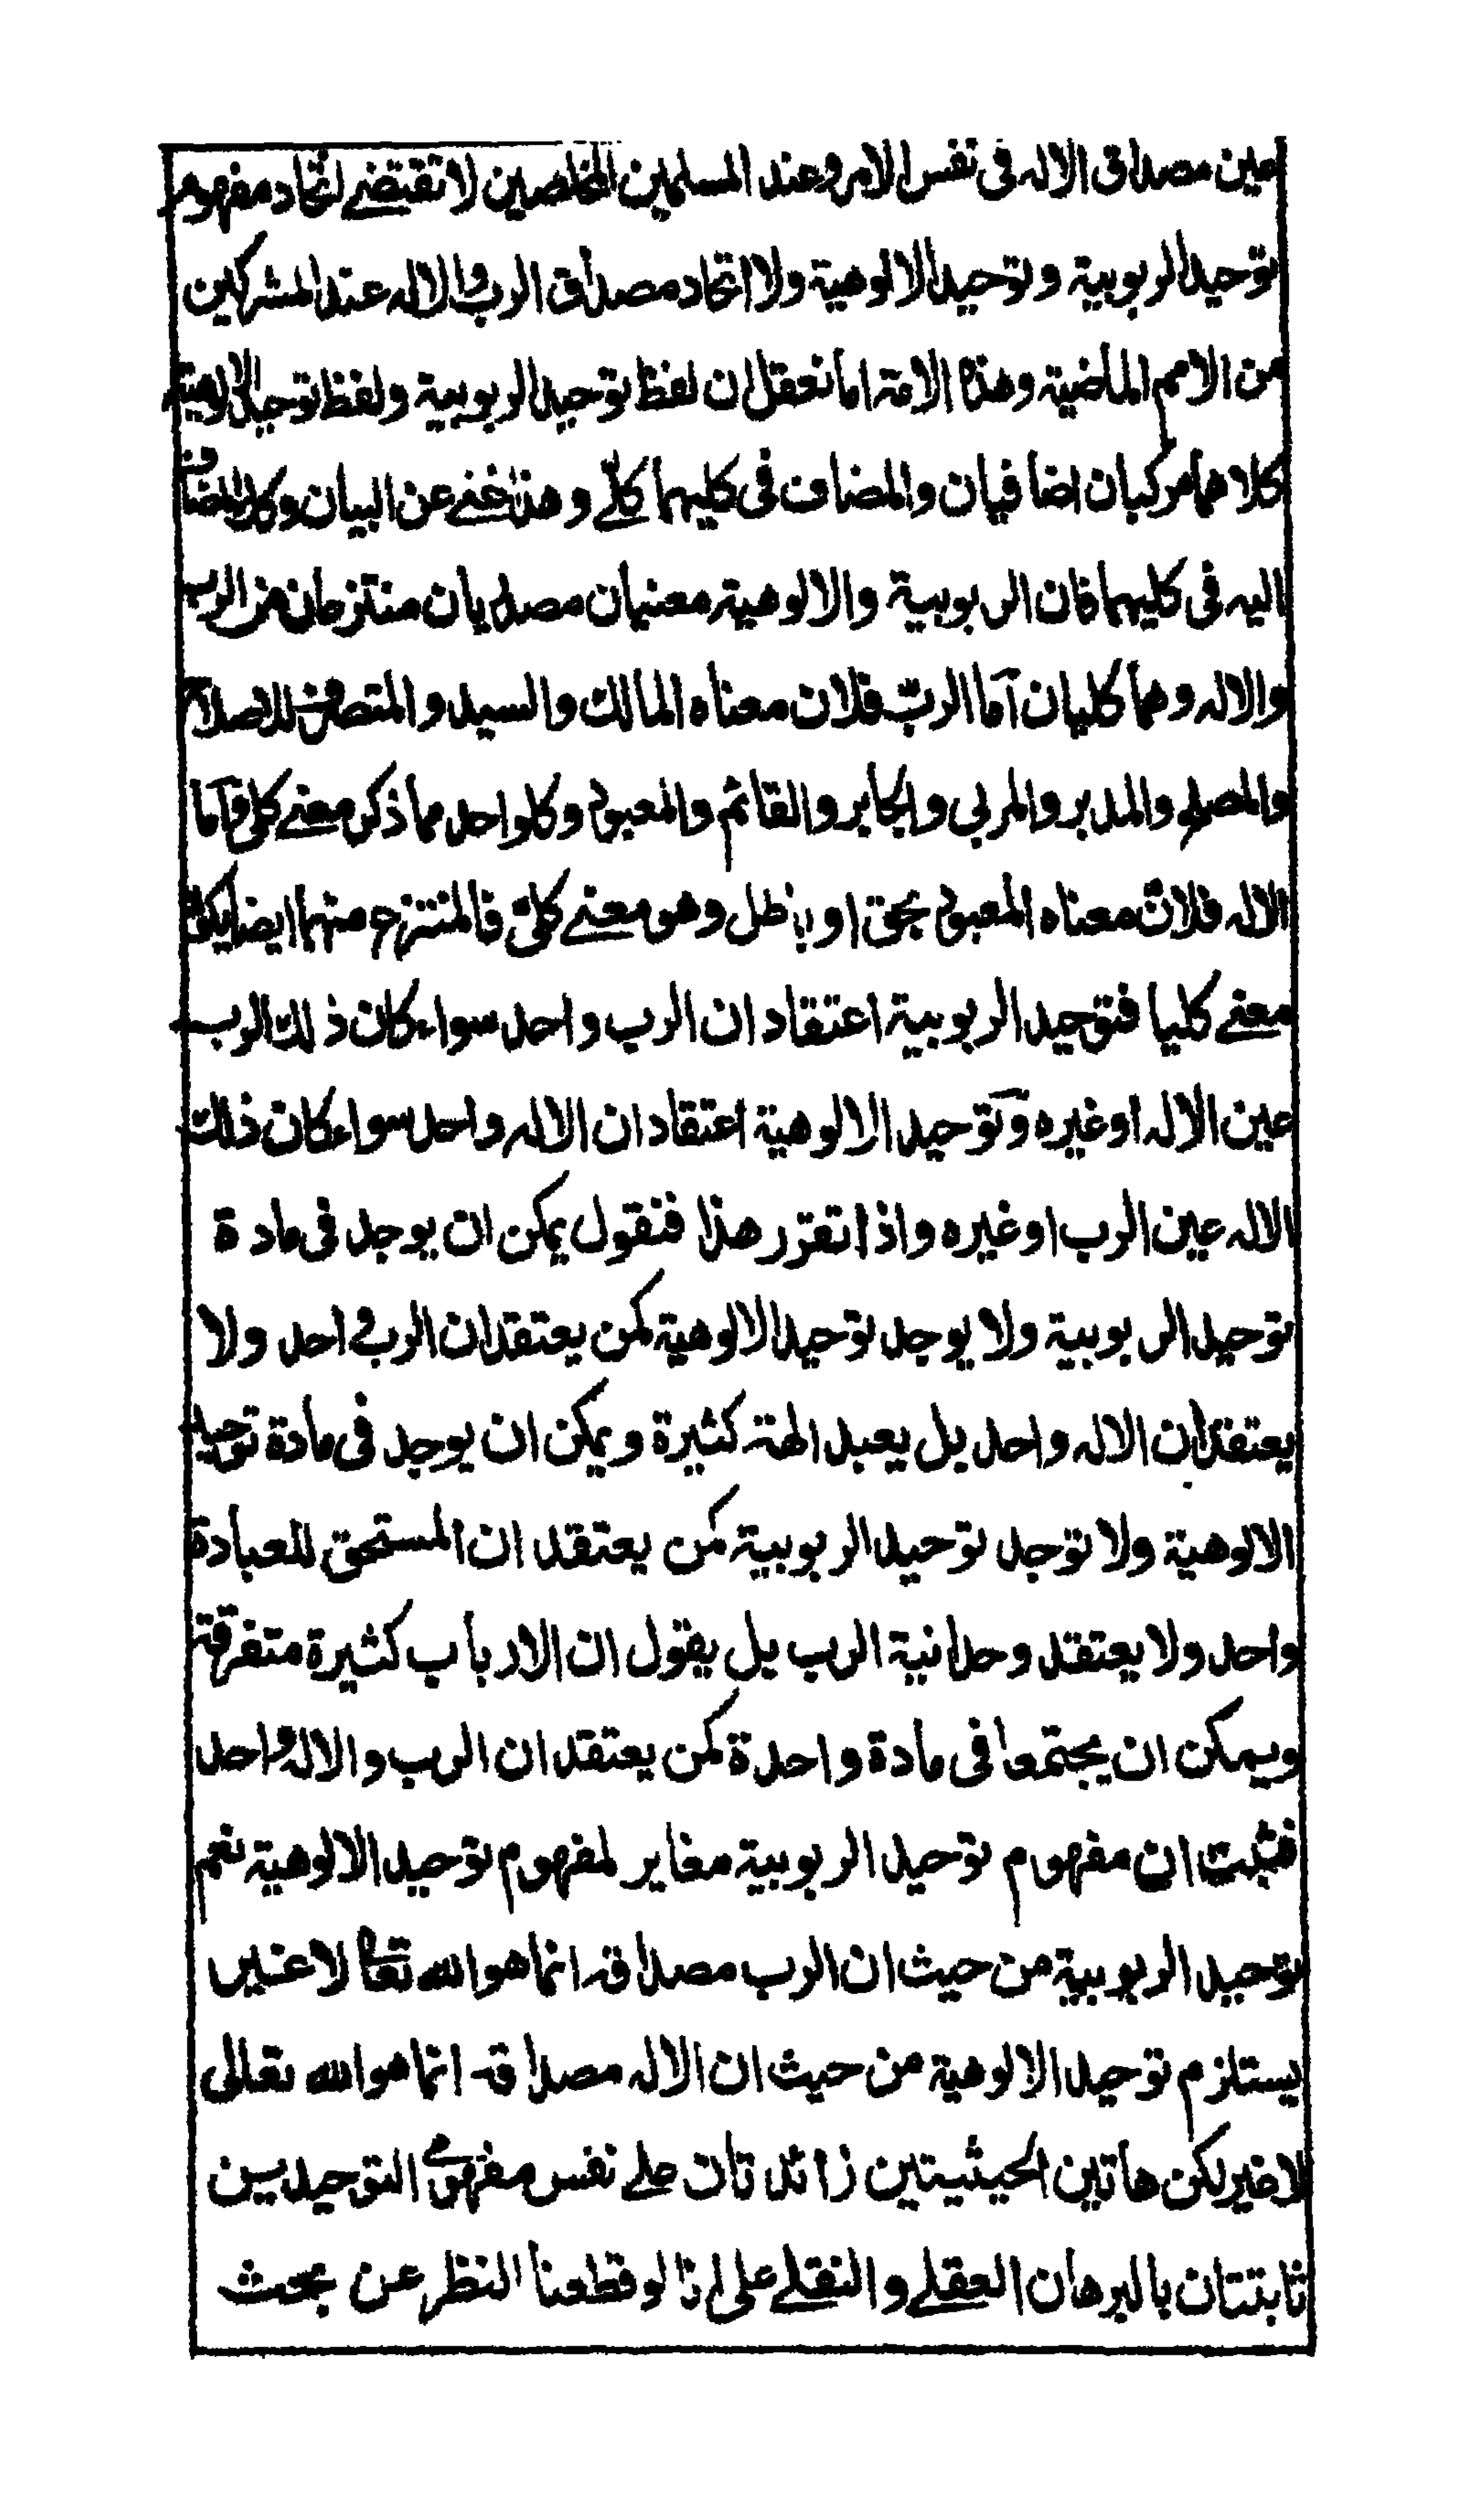 عين مصداق الاله فى نفس الامر وعند المسلمين المخلصين لا تقتضے اتحاد مفهوم
توحيد الربوبية وتوحيد الالوهية ولا اتحاد مصداق الرب والاله عند المشركين
من الامم الماضية وهذه الامة اما تعقل ان لفظ توحيد الربوبية ولفظ توحيد الالوهية
كلاهما مركبان اضافيان والمضاف فى كليهما كلے وهذا غنے عن البيان وكذا المضاف
اليه فى كليهما فان الربوبية والالوهية معنيان مصدريان منتزعان من الرب
والاله وهما كليان أما الرب فلان معناه المالك والسيد والمتصرف للاصلاح
والمصلح والمدبر والمربى والجابر والقائم والمعبود وكل واحد مما ذكر معنے كلى وأما
الاله فلان معناه المعبود بحق او باطل وهو معنے كلى فالمنتزع منهما ايضا يكون
معنے كليا فتوحيد الربوبية اعتقاد ان الرب واحد سواء كان ذلك الرب
عين الاله او غيره وتوحيد الالوهية اعتقاد ان الاله واحد سواء كان ذلك
الاله عين الرب او غيره واذا تقرر هذا فنقول يمكن ان يوجد فى مادة
توحيد الربوبية ولا يوجد توحيد الالوهية كمن يعتقد ان الرب واحد ولا
يعتقد ان الاله واحد بل يعبد الهة كثيرة ويمكن ان يوجد فى مادة توحيد
الالوهية ولا توجد توحيد الربوبية كمن يعتقد ان المستحق للعبادة
واحد ولا يعتقد وحدانية الرب بل يقول ان الارباب كثيرة متفرقة
ويمكن ان يجتمعا فى مادة واحدة كمن يعتقد ان الرب والاله واحد
فثبت ان مفهوم توحيد الربوبية مغاير لمفهوم توحيد الالوهية نعم
توحيد الربوبية من حيث ان الرب مصداقه انما هو الله تعالى لا غير
يستلزم توحيد الالوهية من حيث ان الاله مصداقه انما هو الله تعالى
لا غير لكن هاتين الحيثيتين زائدتان علے نفس مفهومى التوحيدين
ثابتتان بالبرهان العقلے والنقلے على انا لو قطعنا النظر عن بحث